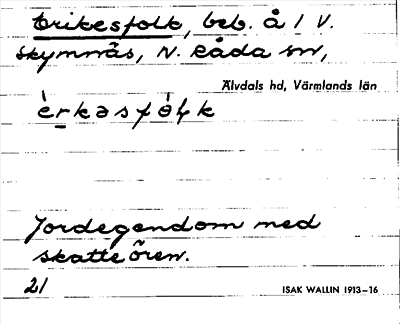 Erikesfolk, beb. å 1 V.
Skymnäs, N. Råda sn,
Älvdals hd, Värmlands län
èrkəsfòlk
Jordegendom med
skatteören.
21
ISAK WALLIN 1913–16